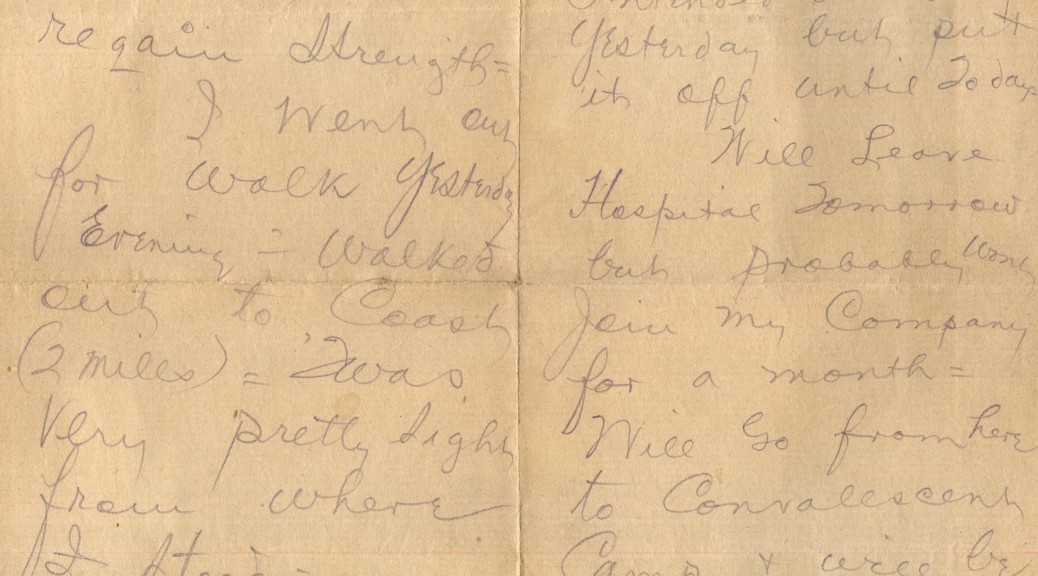 regain Strength =
I Went out
for Walk Yesterday
Evening = Walked
out to Coast
(2 miles) = 'Twas
Very pretty Sight
from where
I Stood =
Intended
Yesterday but putt
it off until Today =
Will Leave
Hospital Tomorrow
but probably Wont
Join My Company
for a month =
Will Go from here
to Convalescent
Camp + will be